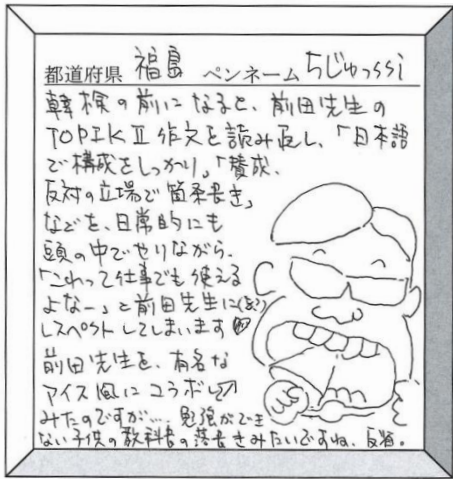 都道府県 福島 ペンネーム ちじゅっssi
韓検の前になると、前田先生の
TOPIKⅡ作文を読み返し、「日本語
で構成をしっかり」「賛成、
反対の立場で箇条書き」
などを、日常的にも
頭の中でやりながら、
「これって仕事でも使える
よなー」と前田先生に
レスペクトしてしまいます
前田先生を、有名な
アイス風にコラボして
みたのですが…、勉強ができ
ない子供の教科書の落書きみたいですね、反省。